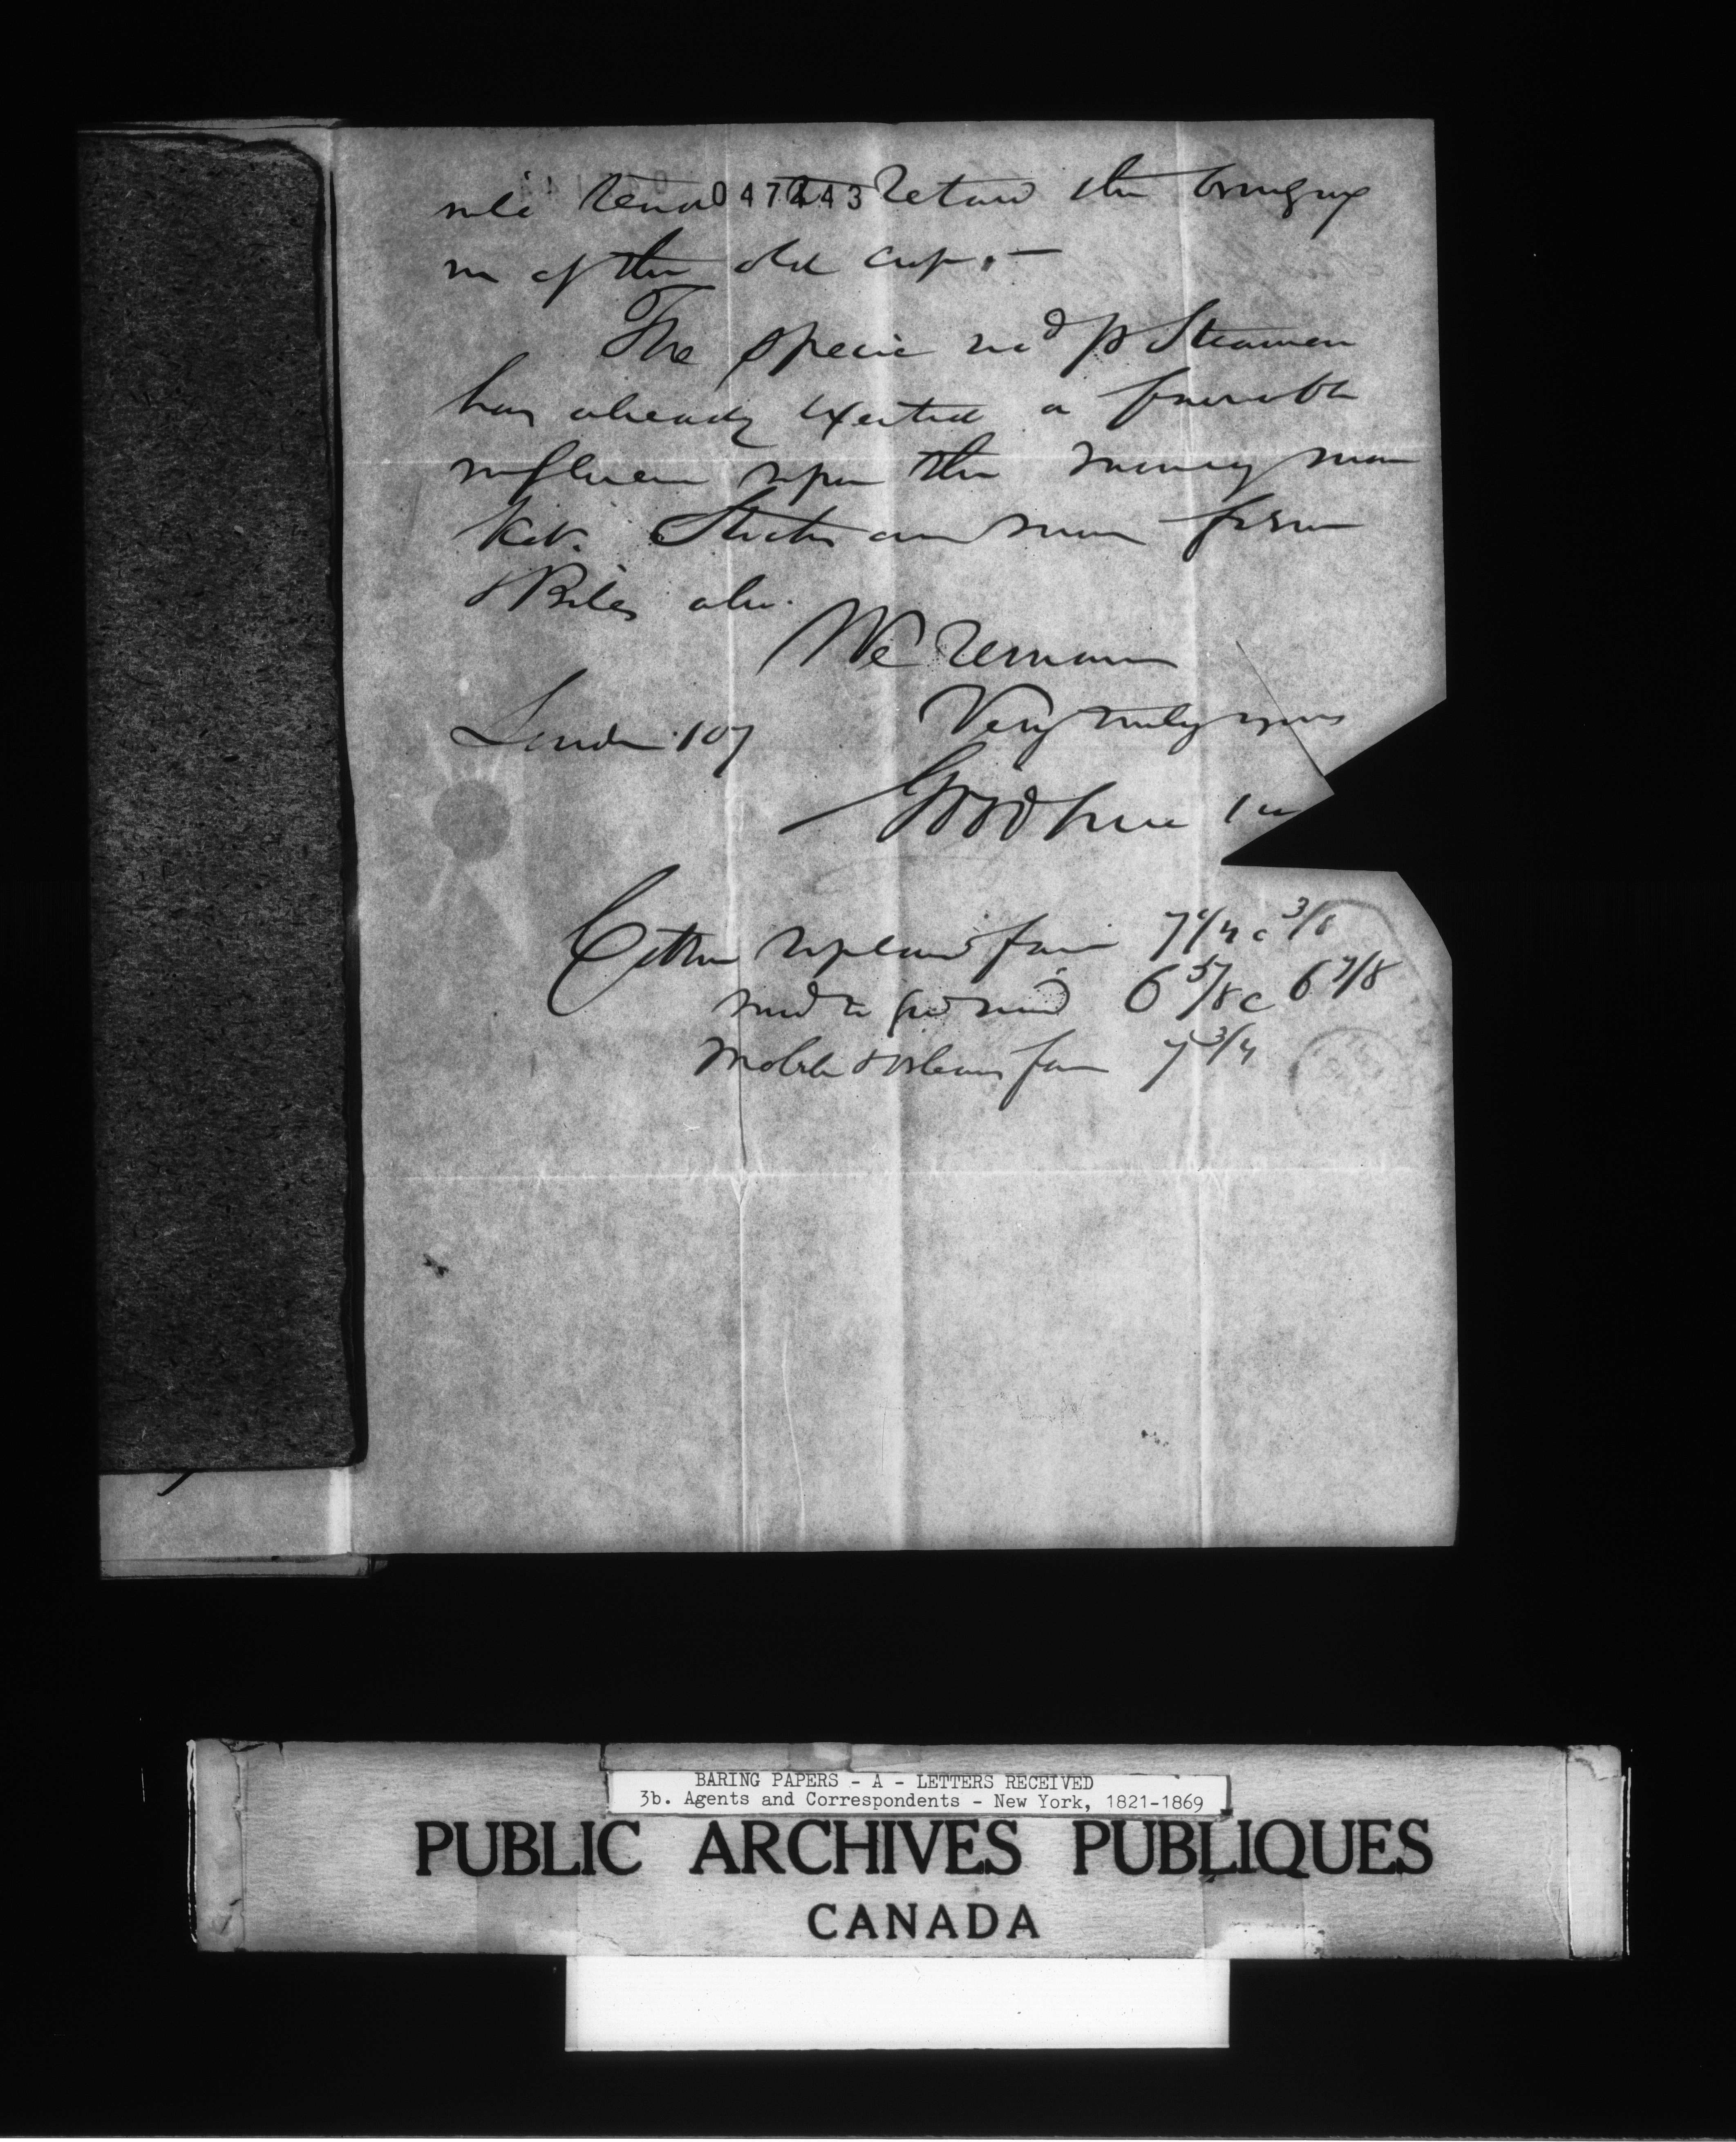 will tend to retard the bringing
in of the old crop. —
047243
The specie recd p Steamer
has already exerted a favorable
influence upon the money mar
ket. Stocks are more firm
& Bills also.
We remain
Very truly yours
London 107
Goodhue & Co
Cotton upland fair 7 1/4 a 3/8
mid to good mid 6 5/8 a 6 7/8
Mobile & Orleans fair 7 3/4
BARING PAPERS - A - LETTERS RECEIVED
3b. Agents and Correspondents - New York, 1821-1869
PUBLIC ARCHIVES PUBLIQUES
CANADA